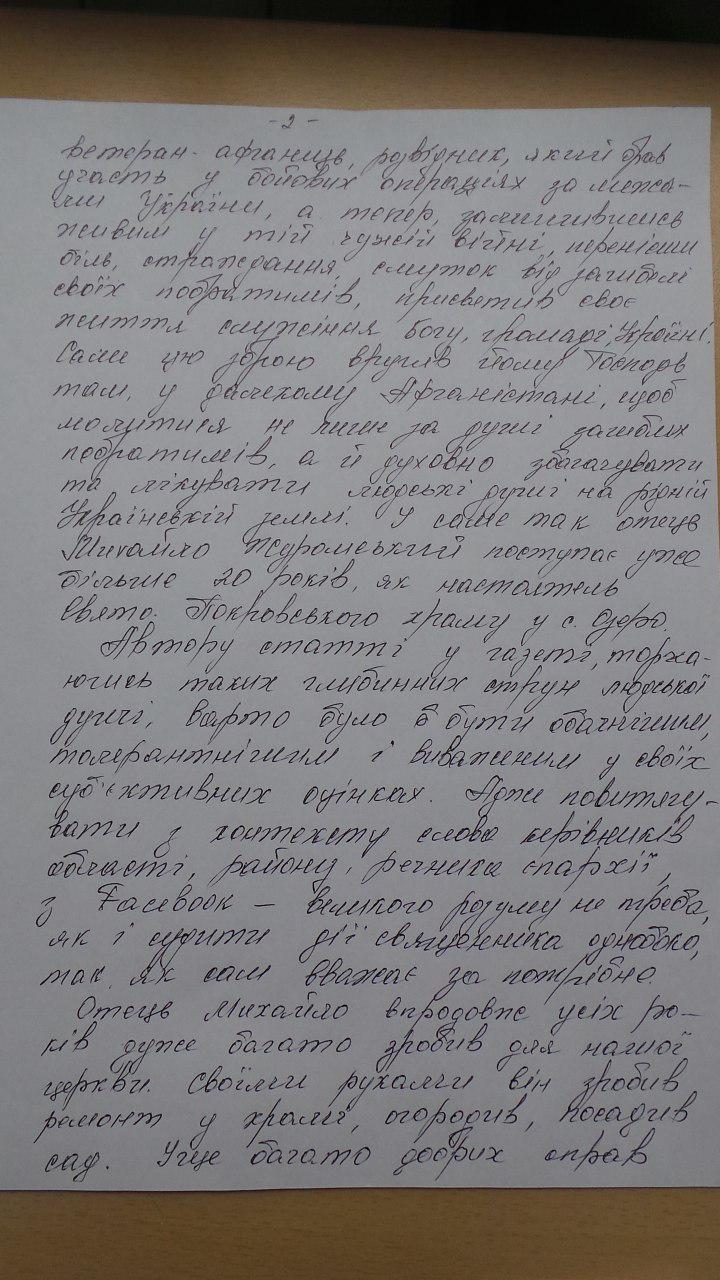 - 2 -
ветеран- афганець, розвідник, який брав
участь у бойових операціях за межа-
ми України, а тепер, залишившись
живим у тій чужій війні, перенісши
біль, страждання, смуток від загибелі
своїх побратимів, присветив своє
життя служіння богу, громаді, Україні.
Саме цю зброю вручив йому Господь
там, у далекому Афганістані, щоб
молитися не лише за душі загиблих
побратимів, а й духовно збагачувати
та лікувати людські душі на рідній
Українській землі. І саме так отець
Михайло Жеромський поступає уже
більше 20 років, як настоятель
Свято. Покровського храму у с. Озеро.
Автору статті у газеті, торка-
ючись таких глибинних струн людської
душі, варто було б бути обачнішим,
толерантнішим і виваженим у своїх
суб'єктивних оцінках. Адже повитягу-
вати з контексту слова керівників
області, району, речника єпархії,
з Facebook – великого розуму не треба,
як і судити дії священника однобоко,
так, як сам вважає за потрібне.
Отець Михайло впродовж усіх ро-
ків дуже багато зробив для нашої
церкви. Своїми руками він зробив
ремонт у храмі, огородив, посадив
сад. І ще багато добрих справ